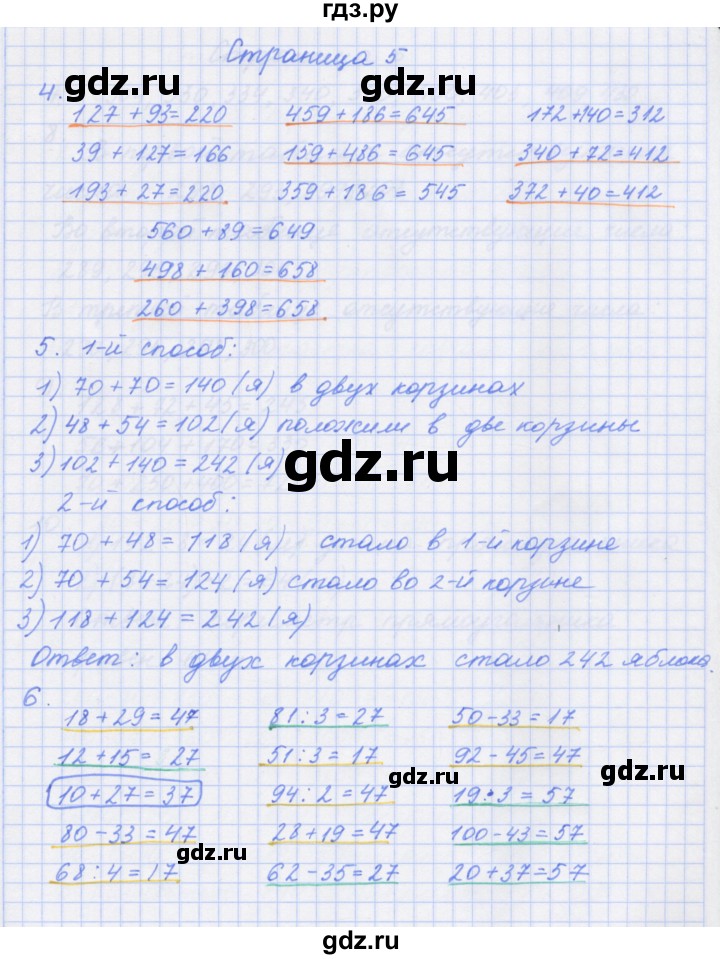 гдз.ру
Страница 5
4.
127 + 93 = 220 459 + 186 = 645 172 + 140 = 312
39 + 127 = 166 159 + 486 = 645 340 + 72 = 412
193 + 27 = 220 359 + 186 = 545 372 + 40 = 412
560 + 89 = 649
498 + 160 = 658
260 + 398 = 658
5. 1-й способ:
1) 70 + 70 = 140 (я) в двух корзинах
2) 48 + 54 = 102 (я) положили в две корзины
3) 102 + 140 = 242 (я)
2-й способ:
1) 70 + 48 = 118 (я) стало в 1-й корзине
2) 70 + 54 = 124 (я) стало во 2-й корзине
3) 118 + 124 = 242 (я)
Ответ: в двух корзинах стало 242 яблока.
6.
18 + 29 = 47 81 : 3 = 27 50 - 33 = 17
12 + 15 = 27 51 : 3 = 17 92 - 45 = 47
10 + 27 = 37 94 : 2 = 47 19 · 3 = 57
80 - 33 = 47 28 + 19 = 47 100 - 43 = 57
68 : 4 = 17 62 - 35 = 27 20 + 37 = 57
gdz.ru
gdz.ru
gdz.ru
gdz.ru
gdz.ru
gdz.ru
gdz.ru
gdz.ru